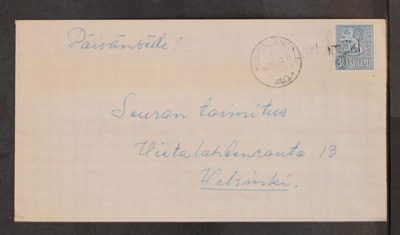 Päivänsäde!
30 SUOMI
Seuran toimitus
Hietalahdenranta 13
Helsinki.